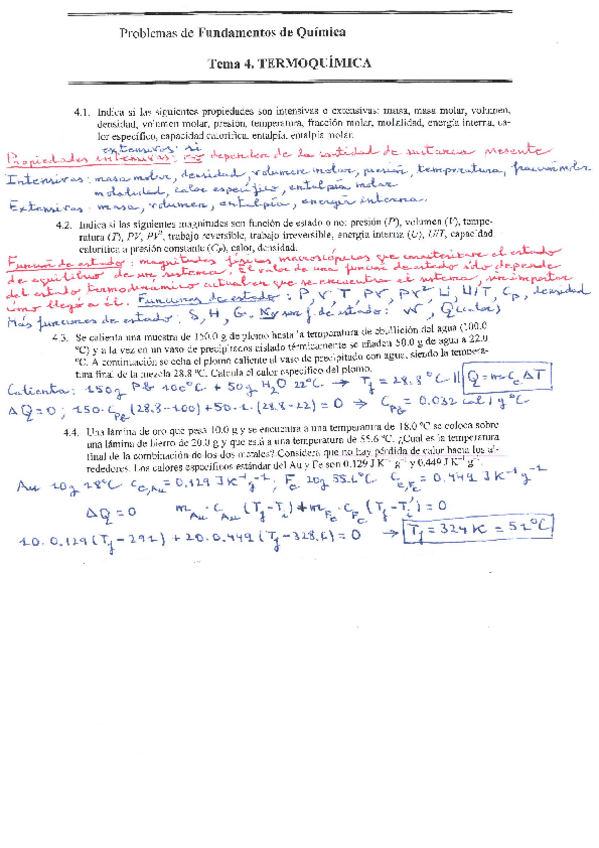 Problemas de Fundamentos de Química
Tema 4. TERMOQUÍMICA
4.1. Indica si las siguientes propiedades son intensivas o extensivas: masa, masa molar, volumen,
densidad, volumen molar, presión, temperatura, fracción molar, molalidad, energía interna, ca-
lor específico, capacidad calorífica, entalpía, entalpía molar.
extensivas: si
Propiedades intensivas: no dependen de la cantidad de sustancia presente
Intensivas: masa molar, densidad, volumen molar, presión, temperatura, fracción molar
molalidad, calor específico, entalpía molar
Extensivas: masa, volumen, entalpía, energía interna.
4.2. Indica si las siguientes magnitudes son función de estado o no: presión (P), volumen (V), tempe-
ratura (T), PV, PV², trabajo reversible, trabajo irreversible, energía interna (U), U/T, capacidad
calorífica a presión constante (Cₚ), calor, densidad.
Función de estado: magnitudes físicas macroscópicas que caracterizan el estado
de equilibrio de un sistema. El valor de una función de estado sólo depende
del estado termodinámico actual en que se encuentra el sistema, sin importar
cómo llegó a él. Funciones de estado: P, V, T, PV, PV², U, U/T, Cₚ, densidad
Más funciones de estado: S, H, G. No son f de estado: W, Q (calor)
4.3. Se calienta una muestra de 150.0 g de plomo hasta la temperatura de ebullición del agua (100.0
ºC) y a la vez en un vaso de precipitados aislado térmicamente se añaden 50.0 g de agua a 22.0
ºC. A continuación se echa el plomo caliente al vaso de precipitado con agua, siendo la tempera-
tura final de la mezcla 28.8 ºC. Calcula el calor específico del plomo.
Calienta: 150g Pb 100ºC + 50g H₂O 22ºC → Tf = 28.8ºC || Q = m Cₑ ΔT
ΔQ = 0; 150·C Pb (28.8-100) + 50·1·(28.8-22) = 0 → C Pb = 0.032 cal/gºC
4.4. Una lámina de oro que pesa 10.0 g y se encuentra a una temperatura de 18.0 ºC se coloca sobre
una lámina de hierro de 20.0 g y que está a una temperatura de 55.6 ºC. ¿Cual es la temperatura
final de la combinación de los dos metales? Considera que no hay pérdida de calor hacia los al-
rededores. Los calores específicos estándar del Au y Fe son 0.129 J K⁻¹ g⁻¹ y 0.449 J K⁻¹ g⁻¹.
Au 10g 18ºC Cₑ,Au = 0.129 J K⁻¹g⁻¹; Fe 20g 55.6ºC Cₑ,Fe = 0.449 J K⁻¹ g⁻¹
ΔQ = 0 m Au · C Au (Tf - Ti) + m Fe · C Fe (Tf - Ti') = 0
10·0.129 (Tf - 291) + 20·0.449 (Tf - 328.6) = 0 → Tf = 324 K = 51ºC